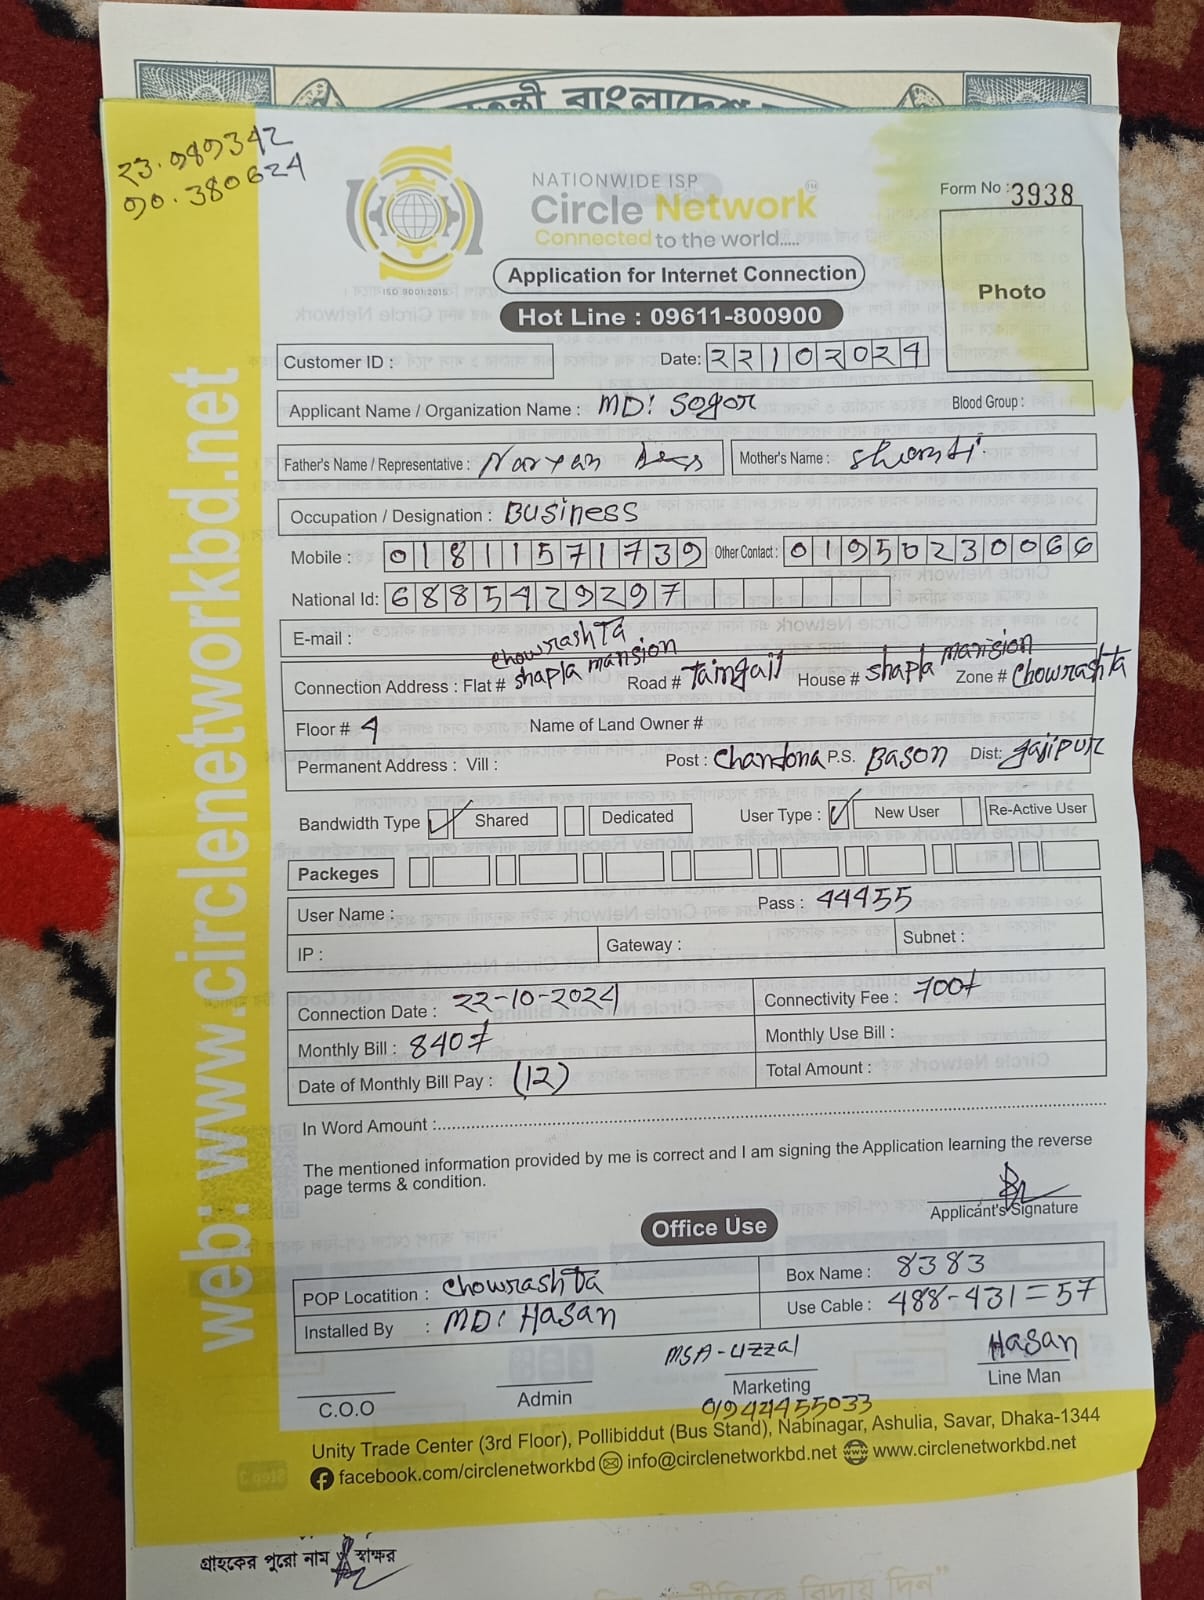 বাংলাদেশ
23.989342
90.380624
NATIONWIDE ISP
Circle Network
Connected to the world.....
ISO 9001:2015
Form No : 3938
Photo
Application for Internet Connection
Hot Line : 09611-800900
Customer ID :
Date: 22102024
Applicant Name / Organization Name : MD: Sogor
Blood Group :
Father's Name / Representative : Naryan
Mother's Name :
Occupation / Designation : Business
Mobile : 01811571739 Other Contact : 01950230066
National Id: 6885429297
E-mail :
chowrashta
Connection Address : Flat # shapla mansion Road # Taingail House # shapla mansion Zone # Chowrashta
Floor # 4 Name of Land Owner #
Permanent Address : Vill : Post : Chandona P.S. Bason Dist: Gajipur
Bandwidth Type Shared Dedicated User Type : New User Re-Active User
Packeges
User Name : Pass : 44455
IP : Gateway : Subnet :
Connection Date : 22-10-2024 Connectivity Fee : 700/
Monthly Bill : 840/ Monthly Use Bill :
Date of Monthly Bill Pay : (12) Total Amount :
In Word Amount :
The mentioned information provided by me is correct and I am signing the Application learning the reverse
page terms & condition.
Applicant's Signature
Office Use
POP Locatition : Chowrashta Box Name : 8383
Installed By : MD: Hasan Use Cable : 488-431=57
MSA-Uzzal Hasan
C.O.O Admin Marketing Line Man
01944455033
Unity Trade Center (3rd Floor), Pollibiddut (Bus Stand), Nabinagar, Ashulia, Savar, Dhaka-1344
facebook.com/circlenetworkbd info@circlenetworkbd.net www.circlenetworkbd.net
web: www.circlenetworkbd.net
গ্রাহকের পুরো নাম ও স্বাক্ষর
বিদায় দিন”